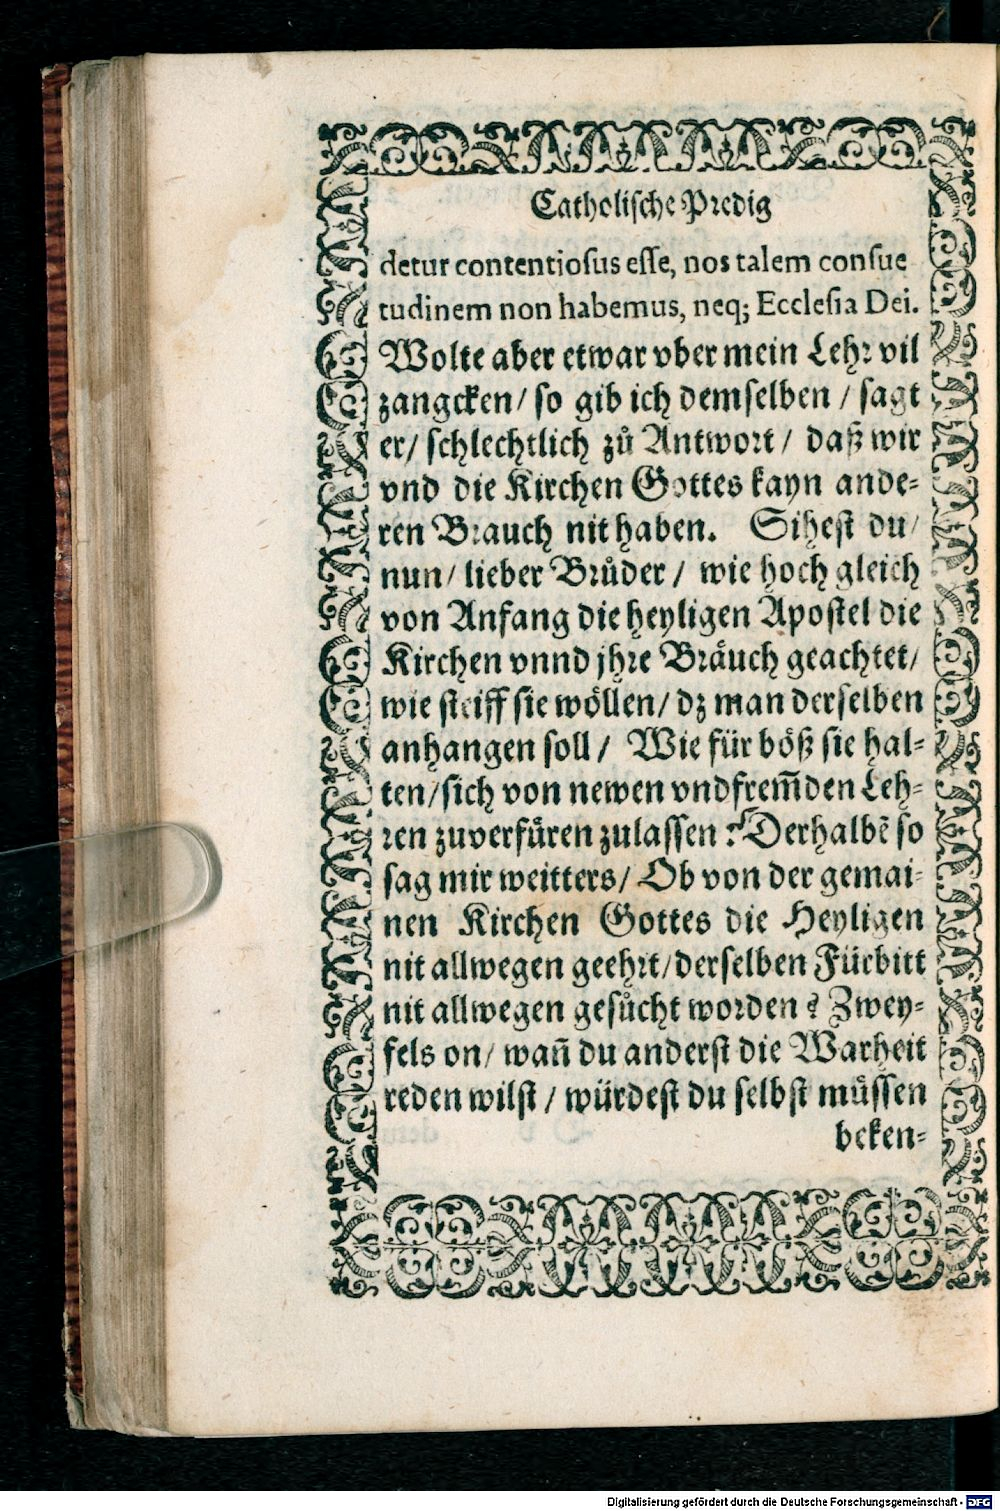 Catholische Predig
detur contentiosus esse, nos talem consue
tudinem non habemus, neq; Ecclesia Dei.
Wolte aber etwar vber mein Lehr vil
zangcken/ so gib ich demselben / sagt
er/ schlechtlich zů Antwort / daß wir
vnd die Kirchen Gottes kayn ande-
ren Brauch nit haben. Sihest du/
nun/ lieber Brůder / wie hoch gleich
von Anfang die heyligen Apostel die
Kirchen vnnd jhre Bräuch geachtet/
wie steiff sie wöllen/ dz man derselben
anhangen soll / Wie für böß sie hal-
ten/sich von newen vnd frem̃den Leh-
ren zuverfüren zulassen? Derhalbẽ so
sag mir weitters/ Ob von der gemai-
nen Kirchen Gottes die Heyligen
nit allwegen geehrt/derselben Fürbitt
nit allwegen gesůcht worden? Zwey-
fels on/ wañ du anderst die Warheit
reden wilst / würdest du selbst müssen
beken-
Digitalisierung gefördert durch die Deutsche Forschungsgemeinschaft - DFG